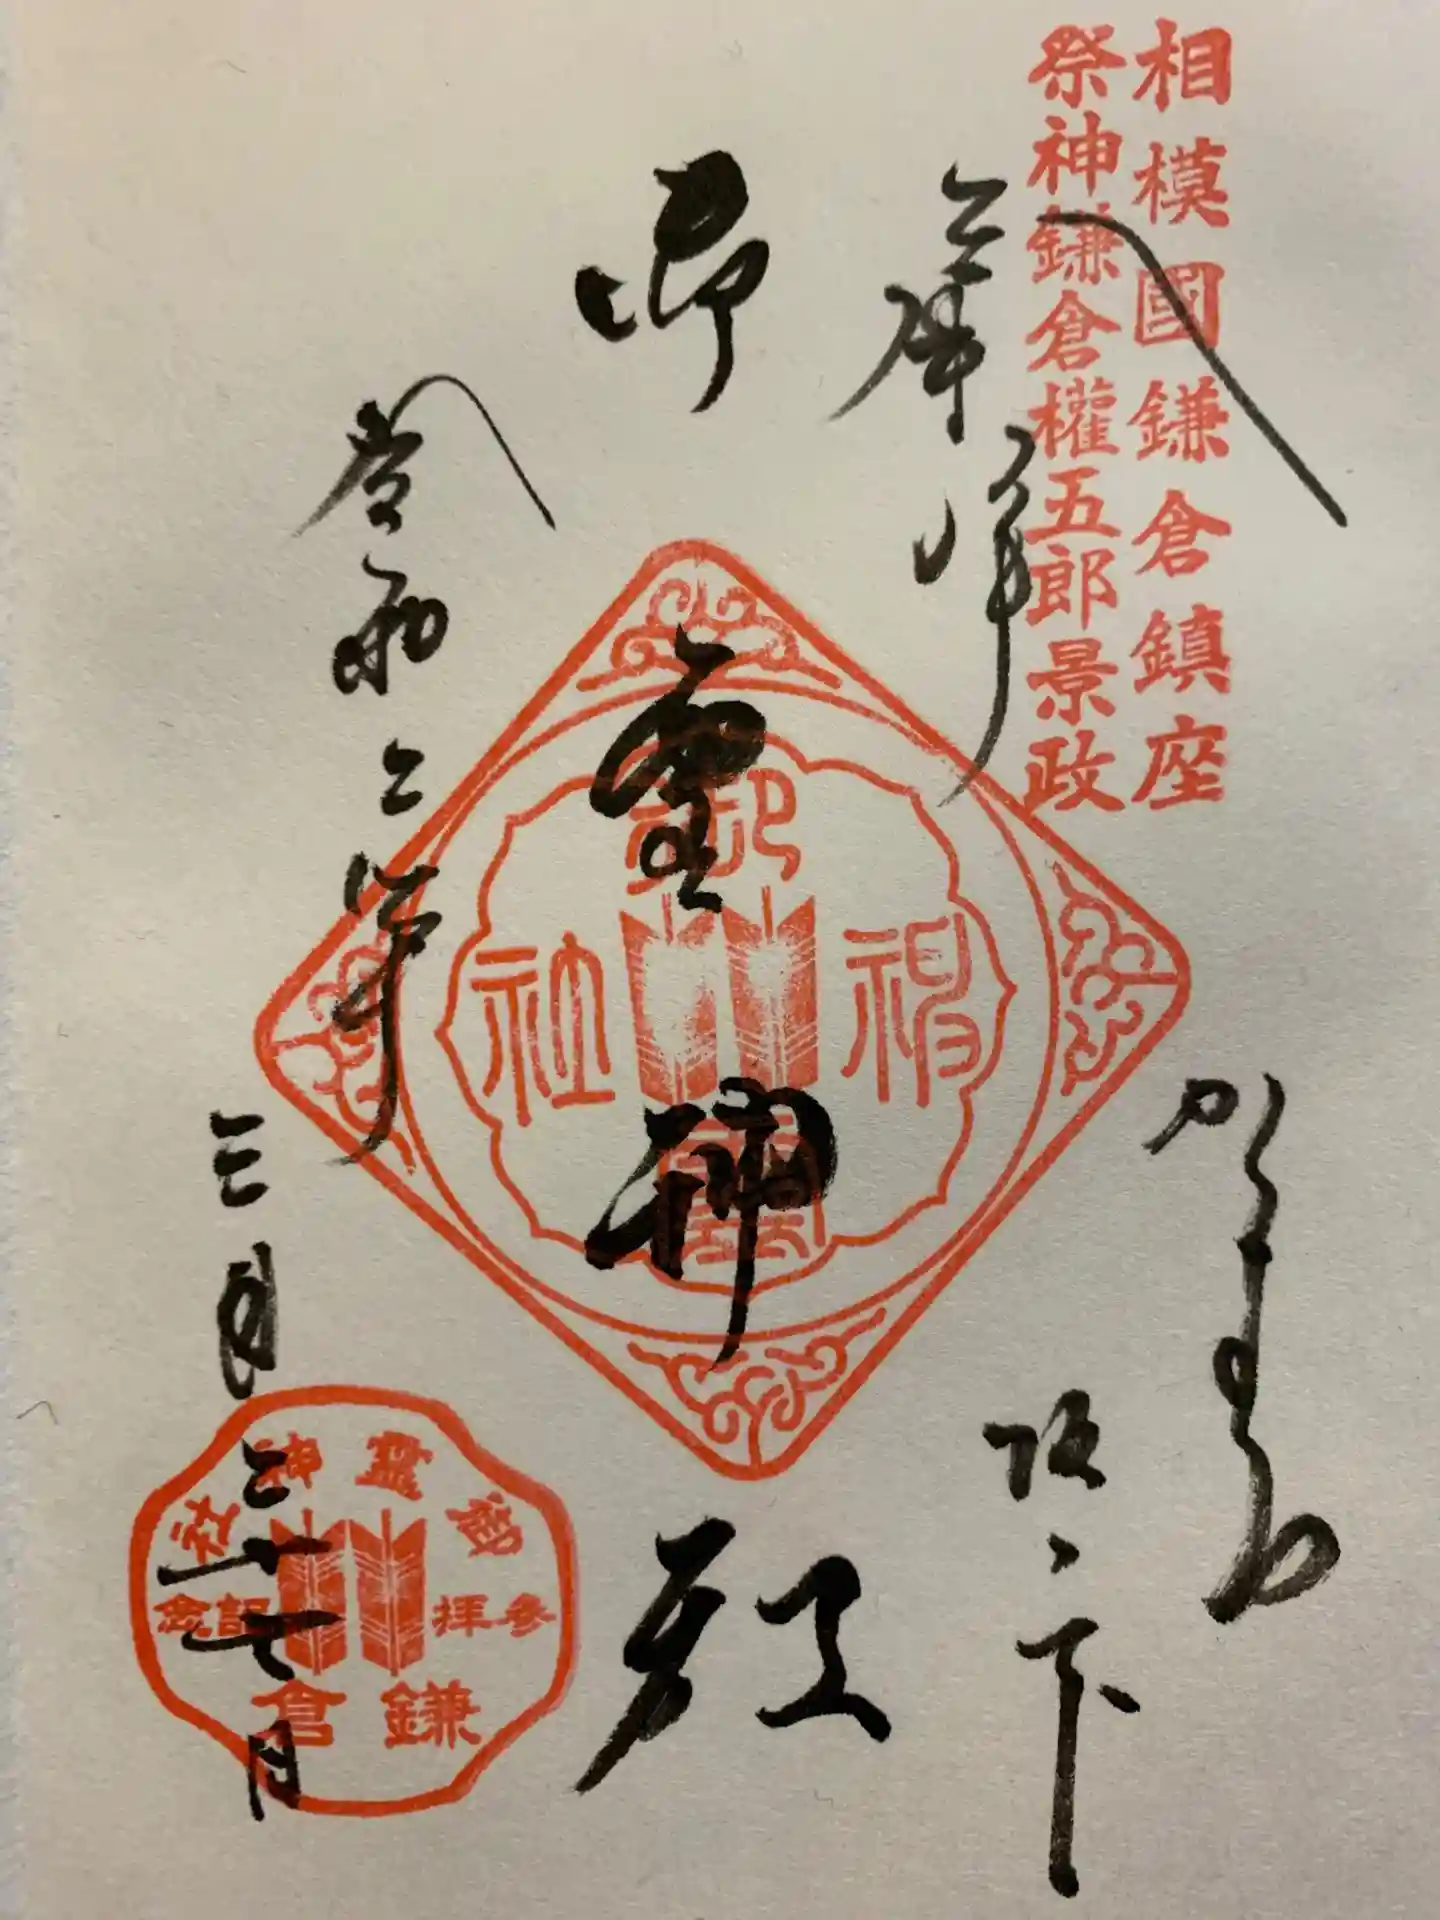 相模國鎌倉鎮座
祭神鎌倉權五郎景政
奉拝
かまくら
坂ノ下
御靈神社
令和二年
三月二十七日
御靈神社
参拝記念
鎌倉